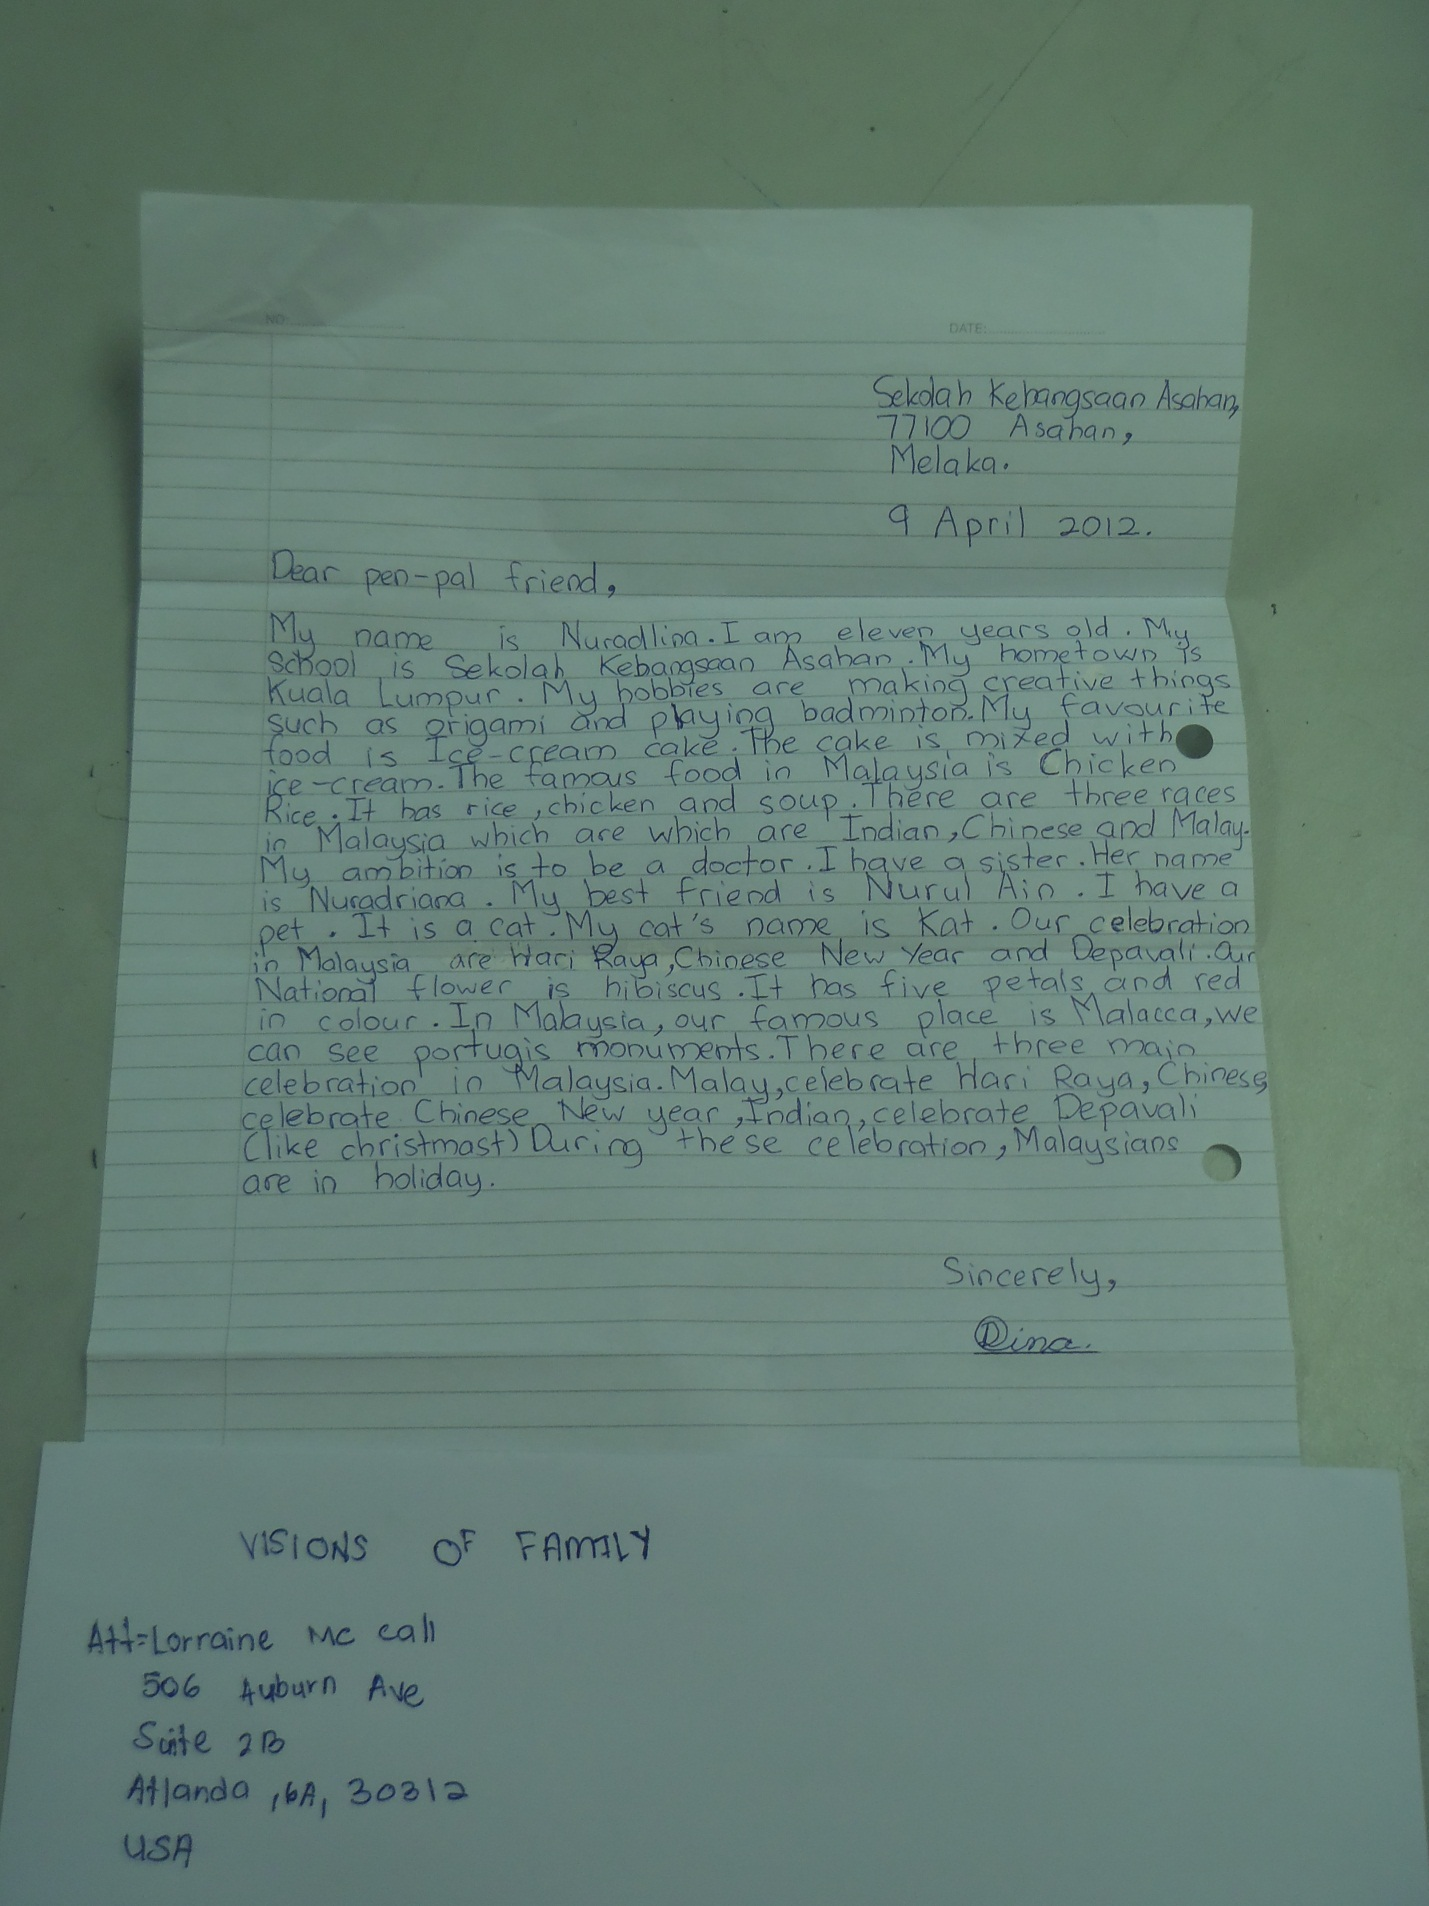 NO:
DATE:
Sekolah Kebangsaan Asahan,
77100 Asahan,
Melaka.
9 April 2012.
Dear pen-pal friend,
My name is Nuradlina. I am eleven years old. My
school is Sekolah Kebangsaan Asahan. My hometown is
Kuala Lumpur. My hobbies are making creative things
such as origami and playing badminton. My favourite
food is Ice-cream cake. The cake is mixed with
ice-cream. The famous food in Malaysia is Chicken
Rice. It has rice, chicken and soup. There are three races
in Malaysia which are which are Indian, Chinese and Malay.
My ambition is to be a doctor. I have a sister. Her name
is Nuradriana. My best friend is Nurul Ain. I have a
pet. It is a cat. My cat's name is Kat. Our celebration
in Malaysia are Hari Raya, Chinese New Year and Depavali. Our
National flower is hibiscus. It has five petals and red
in colour. In Malaysia, our famous place is Malacca, we
can see portugis monuments. There are three main
celebration in Malaysia. Malay, celebrate Hari Raya, Chinese,
celebrate Chinese New year, Indian, celebrate Depavali
(like christmast) During these celebration, Malaysians
are in holiday.
Sincerely,
Dina.
VISIONS OF FAMILY
Att=Lorraine Mc call
506 Auburn Ave
Suite 2B
Atlanda, GA, 30312
USA